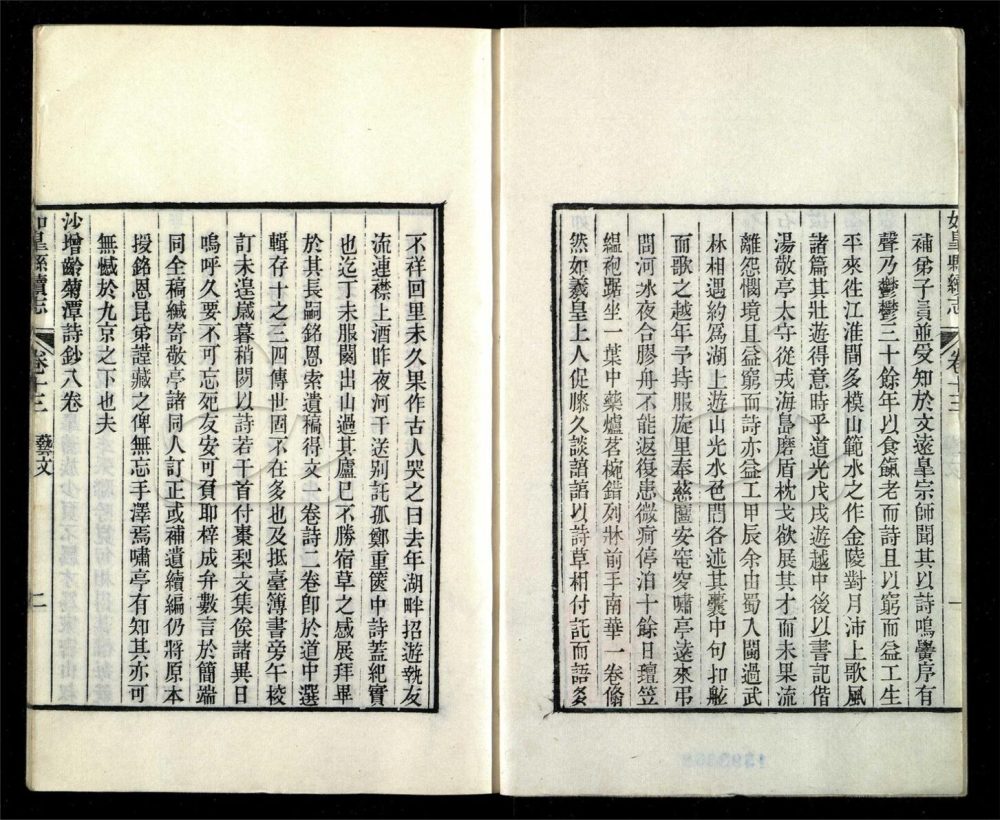 如皋縣續志 卷十三 一
補弟子員並受知於文遠皋宗師聞其以詩鳴黌序有
聲乃鬱鬱三十餘年以食餼老而詩且以窮而益工生
平來往江淮間多模山範水之作金陵對月沛上歌風
諸篇其壯遊得意時乎道光戊戌遊越中後以書記偕
湯敬亭太守從戎海島磨盾枕戈欲展其才而未果流
離怨憫境且益窮而詩亦益工甲辰余由蜀入闈過武
林相遇約為湖上遊山光水色間各述其囊中句扣舷
而歌之越年予持服旋里奉慈隴安窀穸嘯亭遠來弔
問河冰夜合膠舟不能返復患微痾停泊十餘日氊笠
縕袍踞坐一葉中藥爐茗椀錯列牀前手南華一卷翛
然如羲皇上人促膝久談諠諠以詩草相付託而語多
不祥回里未久果作古人哭之曰去年湖畔招遊執友
流連襟上酒昨夜河干送别託孤鄭重篋中詩蓋紀實
也迄丁未服闋出山過其廬已不勝宿草之感展拜畢
於其長嗣銘恩索遺稿得文一卷詩二卷卽於道中選
輯存十之三四傳世固不在多也及抵臺簿書旁午校
訂未遑歲暮稍閒以詩若干首付棗梨文集俟諸異日
嗚呼久要不可忘死友安可負耶梓成弁數言於簡端
同全稿緘寄敬亭諸同人訂正或補遺續編仍將原本
授銘恩昆弟謹藏之俾無忘手澤焉嘯亭有知其亦可
無憾於九京之下也夫
沙增齡菊潭詩鈔八卷
如皋縣續志 卷十三 藝文 二